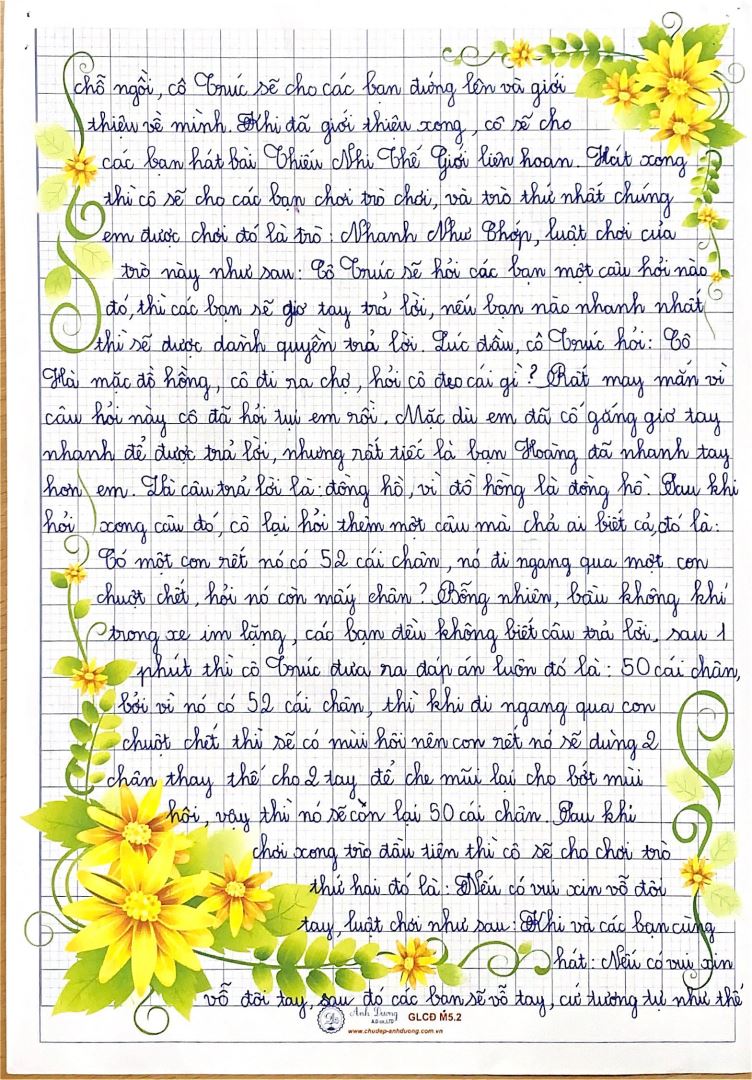 chỗ ngồi, cô Trúc sẽ cho các bạn đứng lên và giới
thiệu về mình. Khi đã giới thiệu xong, cô sẽ cho
các bạn hát bài Thiếu Nhi Thế Giới liên hoan. Hát xong
thì cô sẽ cho các bạn chơi trò chơi, và trò thứ nhất chúng
em được chơi đó là trò: Nhanh Như Chớp, luật chơi của
trò này như sau: Cô Trúc sẽ hỏi các bạn một câu hỏi nào
đó, thì các bạn sẽ giơ tay trả lời, nếu bạn nào nhanh nhất
thì sẽ được dành quyền trả lời. Lúc đầu, cô Trúc hỏi: Cô
Hà mặc đồ hồng, cô đi ra chợ, hỏi cô đeo cái gì? Rất may mắn vì
câu hỏi này cô đã hỏi tụi em rồi. Mặc dù em đã cố gắng giơ tay
nhanh để được trả lời, nhưng rất tiếc là bạn Hoàng đã nhanh tay
hơn em. Và câu trả lời là: đồng hồ, vì đồ hồng là đồng hồ. Sau khi
hỏi xong câu đó, cô lại hỏi thêm một câu mà chả ai biết cả, đó là:
Có một con rết nó có 52 cái chân, nó đi ngang qua một con
chuột chết, hỏi nó còn mấy chân? Bỗng nhiên, bầu không khí
trong xe im lặng, các bạn đều không biết câu trả lời, sau 1
phút thì cô Trúc đưa ra đáp án luôn đó là: 50 cái chân,
bởi vì nó có 52 cái chân, thì khi đi ngang qua con
chuột chết thì sẽ có mùi hôi nên con rết nó sẽ dùng 2
chân thay thế cho 2 tay để che mũi lại cho bớt mùi
hôi, vậy thì nó sẽ còn lại 50 cái chân. Sau khi
chơi xong trò đầu tiên thì cô sẽ cho chơi trò
thứ hai đó là: Nếu có vui xin vỗ đôi
tay, luật chơi như sau: Khi và các bạn cùng
hát: Nếu có vui xin
vỗ đôi tay, sau đó các bạn sẽ vỗ tay, cứ tương tự như thế
Ánh Dương GLCĐ M5.2
www.chudep-anhduong.com.vn